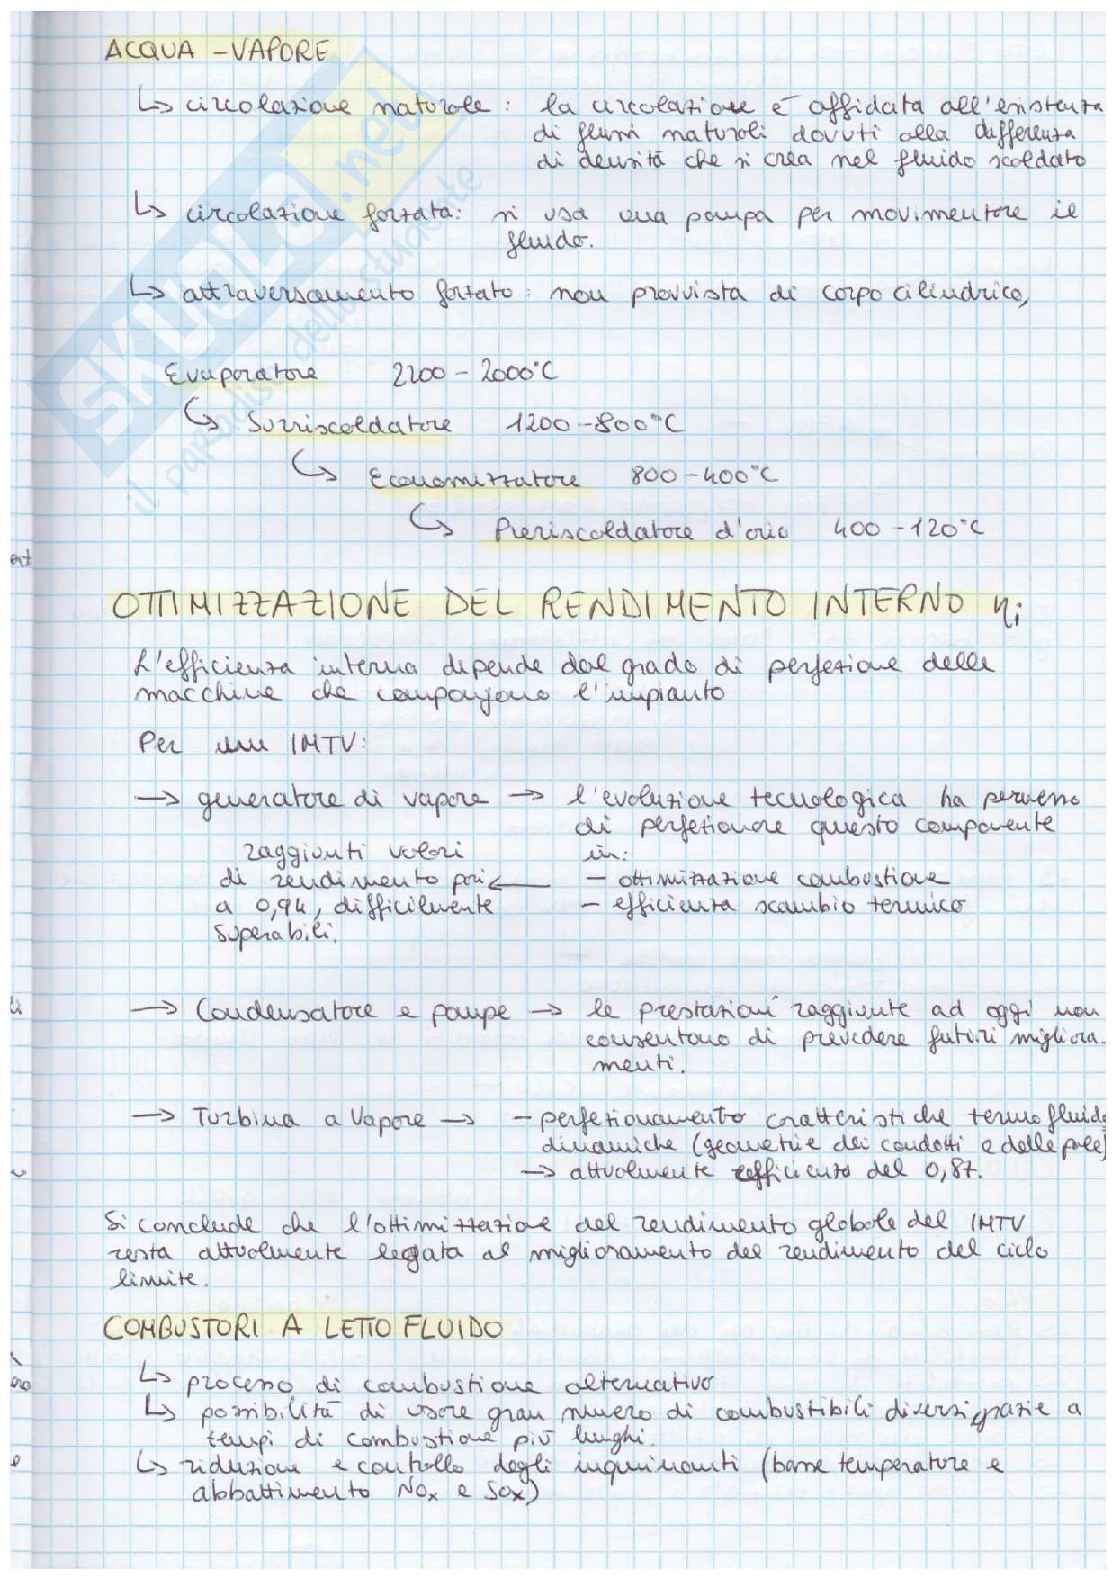 ACQUA - VAPORE
↳ circolazione naturale: la circolazione è affidata all'esistenza
di flussi naturali dovuti alla differenza
di densità che si crea nel fluido scaldato
↳ circolazione forzata: si usa una pompa per movimentare il
fluido.
↳ attraversamento forzato: non provvista di corpo cilindrico,
Evaporatore 2200-2000°C
↳ Surriscaldatore 1200-800°C
↳ Economizzatore 800-400°C
↳ Preriscaldatore d'aria 400-120°C
OTTIMIZZAZIONE DEL RENDIMENTO INTERNO ηi
L'efficienza interna dipende dal grado di perfezione delle
macchine che compongono l'impianto
Per un IMTV:
→ generatore di vapore → l'evoluzione tecnologica ha permesso
di perfezionare questo componente
in:
- ottimizzazione combustione
- efficienza scambio termico
raggiunti valori
di rendimento pari ←
a 0,94, difficilmente
superabili.
→ Condensatore e pompe → le prestazioni raggiunte ad oggi non
consentono di prevedere futuri migliora-
menti.
→ Turbina a Vapore → - perfezionamento caratteristiche termofluido
dinamiche (geometrie dei condotti e delle pale)
→ attualmente efficienza del 0,87.
Si conclude che l'ottimizzazione del rendimento globale del IMTV
resta attualmente legata al miglioramento del rendimento del ciclo
limite.
COMBUSTORI A LETTO FLUIDO
↳ processo di combustione alternativo
↳ possibilità di usare gran numero di combustibili diversi grazie a
tempi di combustione più lunghi.
↳ riduzione e controllo degli inquinanti (basse temperature e
abbattimento NOx e SOx)
SKUOLA.net
il paradiso dello studente